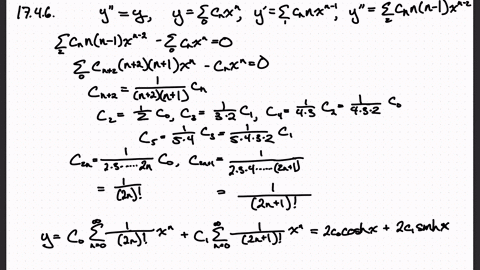 17.4.6. y'' = y, y = Σ₀ cₙxⁿ, y' = Σ₁ cₙnxⁿ⁻¹, y'' = Σ₂ cₙn(n-1)xⁿ⁻²
Σ₂ cₙn(n-1)xⁿ⁻² - Σ₀ cₙxⁿ = 0
Σ₀ cₙ₊₂(n+2)(n+1)xⁿ - cₙxⁿ = 0
cₙ₊₂ = 1/((n+2)(n+1)) cₙ
c₂ = 1/2 c₀, c₃ = 1/(3·2) c₁, c₄ = 1/(4·3) c₂ = 1/(4·3·2) c₀
c₅ = 1/(5·4) c₃ = 1/(5·4·3·2) c₁
c₂ₙ = 1/(2·3·····2n) c₀, c₂ₙ₊₁ = 1/(2·3·4·····(2n+1))
= 1/(2n)! = 1/(2n+1)!
y = c₀ Σₙ₌₀^∞ 1/(2n)! xⁿ + c₁ Σₙ₌₀^∞ 1/(2n+1)! xⁿ = 2c₀coshx + 2c₁sinhx